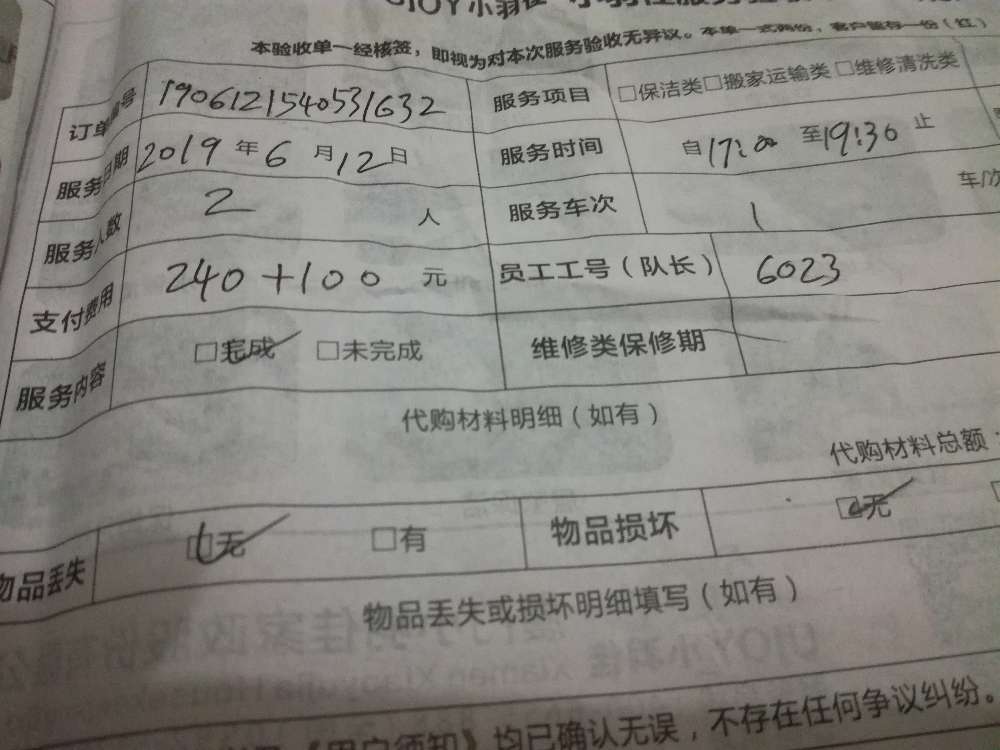 UJOY小羽佳
本验收单一经核签，即视为对本次服务验收无异议。本单一式两份，客户留存一份（红）
订单编号 1906121540531632 服务项目 □保洁类□搬家运输类 □维修清洗类
服务日期 2019 年 6 月 12 日 服务时间 自 17:00 至 19:30 止
服务人数 2 人 服务车次 1 车/次
支付费用 240+100 元 员工工号（队长） 6023
服务内容 □完成 □未完成 维修类保修期
代购材料明细（如有）
代购材料总额：
物品丢失 □无 □有 物品损坏 □无
物品丢失或损坏明细填写（如有）
《用户须知》均已确认无误，不存在任何争议纠纷。